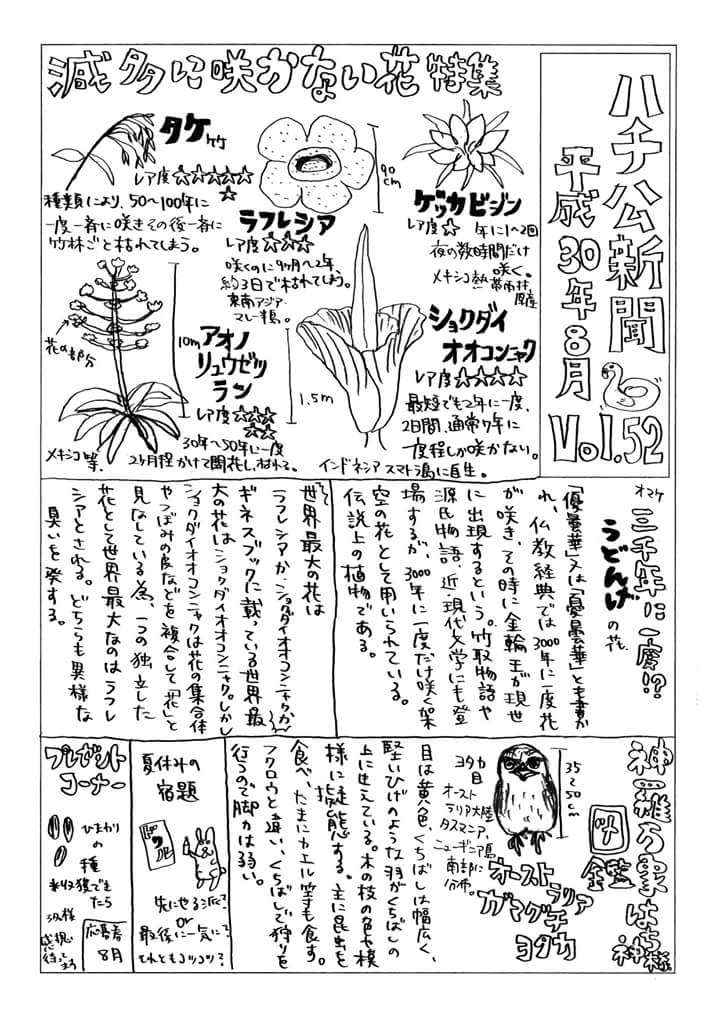 ハチ公新聞
平成30年8月
Vol.52
滅多に咲かない花特集
ゲッカビジン
レア度☆
年に1~2回
夜の数時間だけ
咲く。
メキシコ熱帯雨林
原産
90cm
ラフレシア
レア度☆☆☆
咲くのに9ヶ月~2年、
約3日で枯れてしまう。
東南アジア
マレー半島。
タケ
竹
レア度☆☆☆☆☆
☆
種類により、50~100年に
一度一斉に咲きその後一斉に
竹林ごと枯れてしまう。
ショクダイ
オオコンニャク
レア度☆☆☆☆
最短でも2年に一度、
2日間、通常7年に
一度程しか咲かない。
インドネシア スマトラ島に自生。
1.5m
アオノ
リュウゼツ
ラン
レア度☆☆☆
☆☆
30年~50年に一度
2ヶ月程かけて開花し、枯れる。
10m
花の部分
メキシコ等.
オマケ
三千年に一度!?
うどんげの花
「優曇華」又は「憂曇華」とも書か
れ、仏教経典では3000年に一度花
が咲き、その時に金輪王が現世
に出現するという。竹取物語や
源氏物語、近・現代文学にも登
場するが、3000年に一度だけ咲く架
空の花として用いられている。
伝説上の植物である。
世界最大の花は
ラフレシアか、ショクダイオオコンニャクか
ギネスブックに載っている世界最
大の花はショクダイオオコンニャク。しかし
ショクダイオオコンニャクは花の集合体
やつぼみの皮などを複合して「花」と
見なしている為、一つの独立した
花として世界最大なのはラフレ
シアとされる。どちらも異様な
臭いを発する。
神羅万象はち神様
図鑑
オーストラリア
ガマグチ
ヨタカ
35~50cm
ヨタカ
目
オースト
ラリア大陸
タスマニア、
ニューギニア島
南部に
分布。
目は黄色、くちばしは幅広く、
堅いひげのような羽がくちばしの
上に生えている。木の枝の色や模
様に擬態する。主に昆虫を
食べ、たまにカエル等も食す。
フクロウと違い、くちばしで狩りを
行うので脚力は弱い。
夏休みの
宿題
先にやる派?
or
最後に一気に?
それともコツコツ?
プレゼント
コーナー
ひまわり
の
種
※収穫でき
たら
3名様
応募券
8月
感想
待ってます